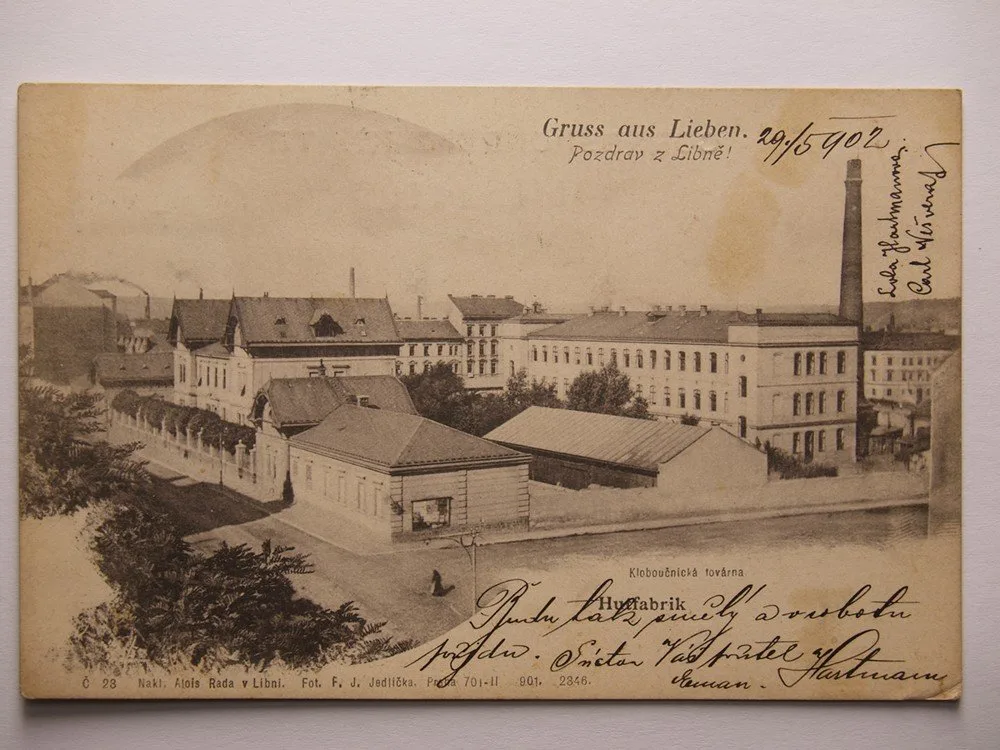 Gruss aus Lieben.
Pozdrav z Libně!
29/5 902
Lola Hartmanova
Carl
Kloboučnická továrna
Hutfabrik
Budu tak smělý a v sobotu
přijdu. Váš přítel Hartmann
Č 23 Nakl. Alois Rada v Libni. Fot. F. J. Jedlička. Praha 701-II 901. 2346.